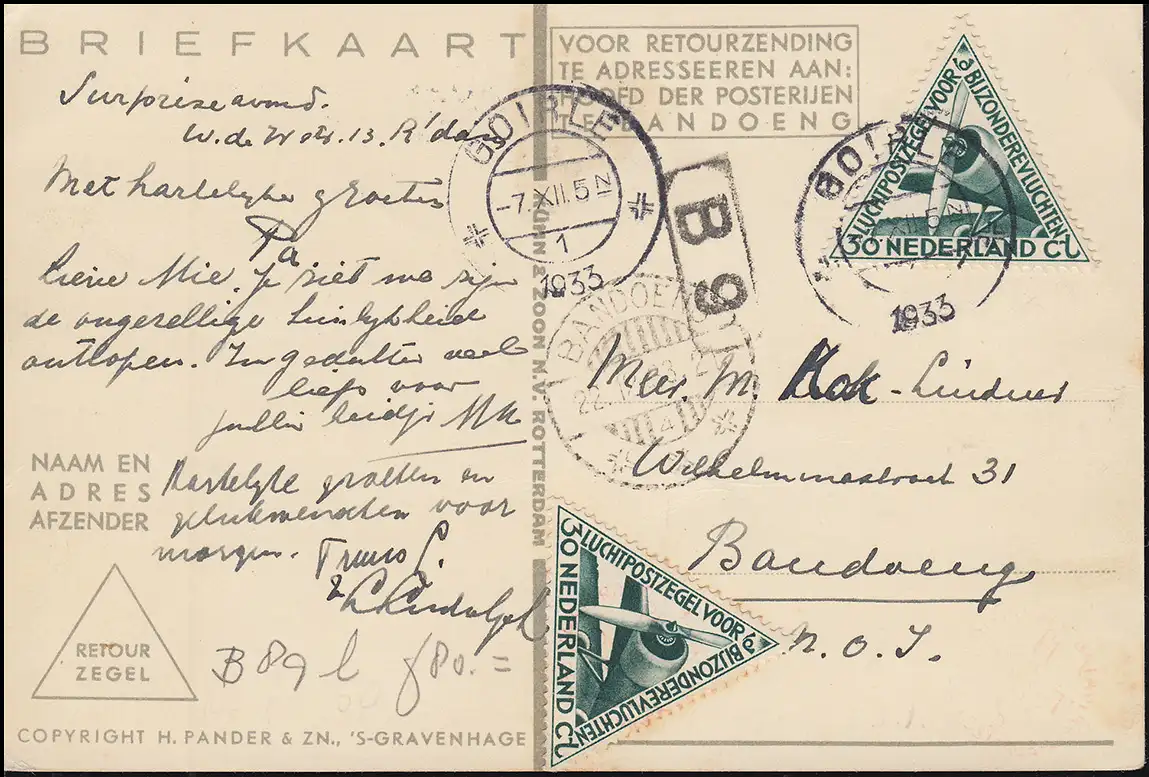 BRIEFKAART
Surpriseavond.
W.d.W 13. R'dam
Met hartelyke groeten
Pa
Lieve Mie. Je ziet we zijn
de ongezellige huislijkheid
ontlopen. In gedachten veel
liefs voor
jullie
NAAM EN
ADRES
AFZENDER
Hartelyke groeten en
gelukwenschen voor
morgen. Truus
RETOUR
ZEGEL
B89b f80.=
COPYRIGHT H. PANDER & ZN., 'S-GRAVENHAGE
KÜHN & ZOON N.V. ROTTERDAM
VOOR RETOURZENDING
TE ADRESSEEREN AAN:
HOOFD DER POSTERIJEN
TE BANDOENG
GOIRLE
-7.XII.5N
1
1933
B9
BANDOENG
22.
4
LUCHTPOSTZEGEL VOOR
BIJZONDERE VLUCHTEN
30 NEDERLAND CT
GOIRLE
XII.5N
1933
Mevr. M. Kok-Lindner
Wilhelminastraat 31
Bandoeng
N.O.I.
LUCHTPOSTZEGEL VOOR
BIJZONDERE VLUCHTEN
30 NEDERLAND CT